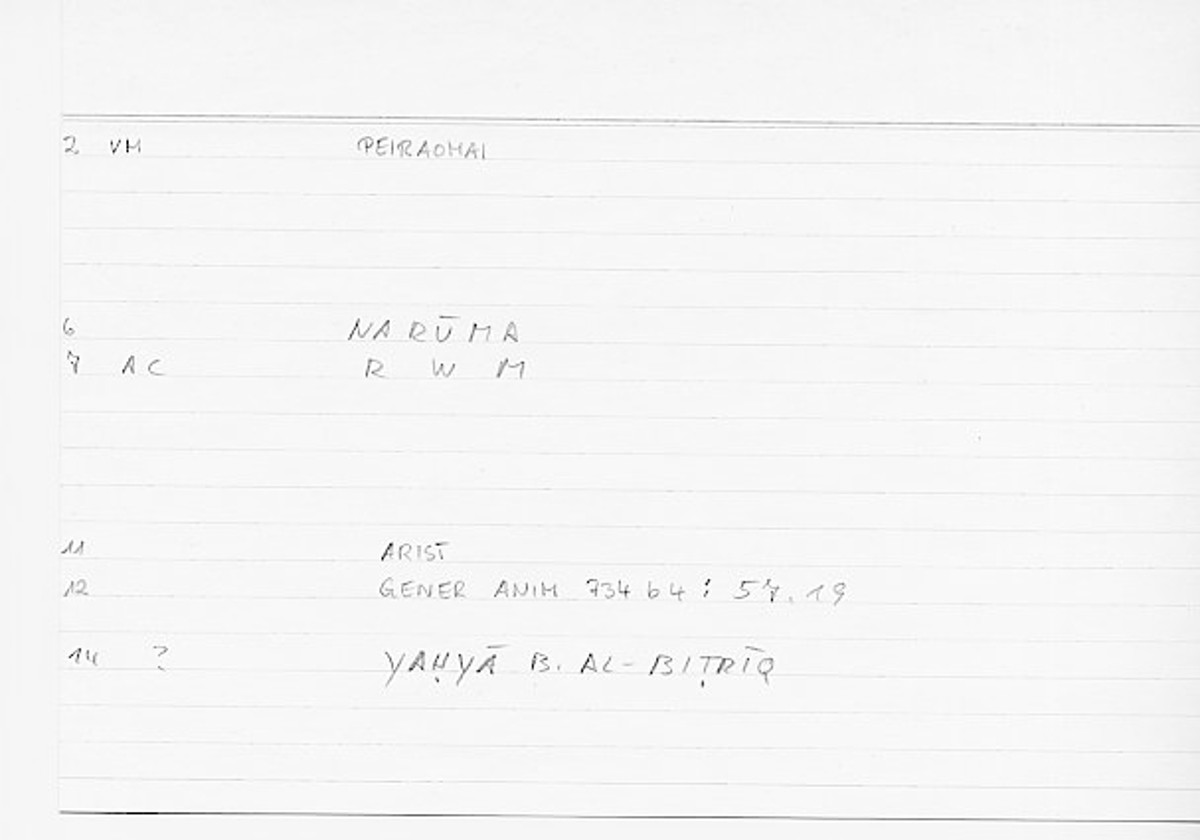 2 VM PEIRAOMAI
6 NARŪMA
7 AC R W M
11 ARIST
12 GENER ANIM 734 b 4 : 57.19
14 ? YAḤYĀ B. AL-BIṬRĪQ